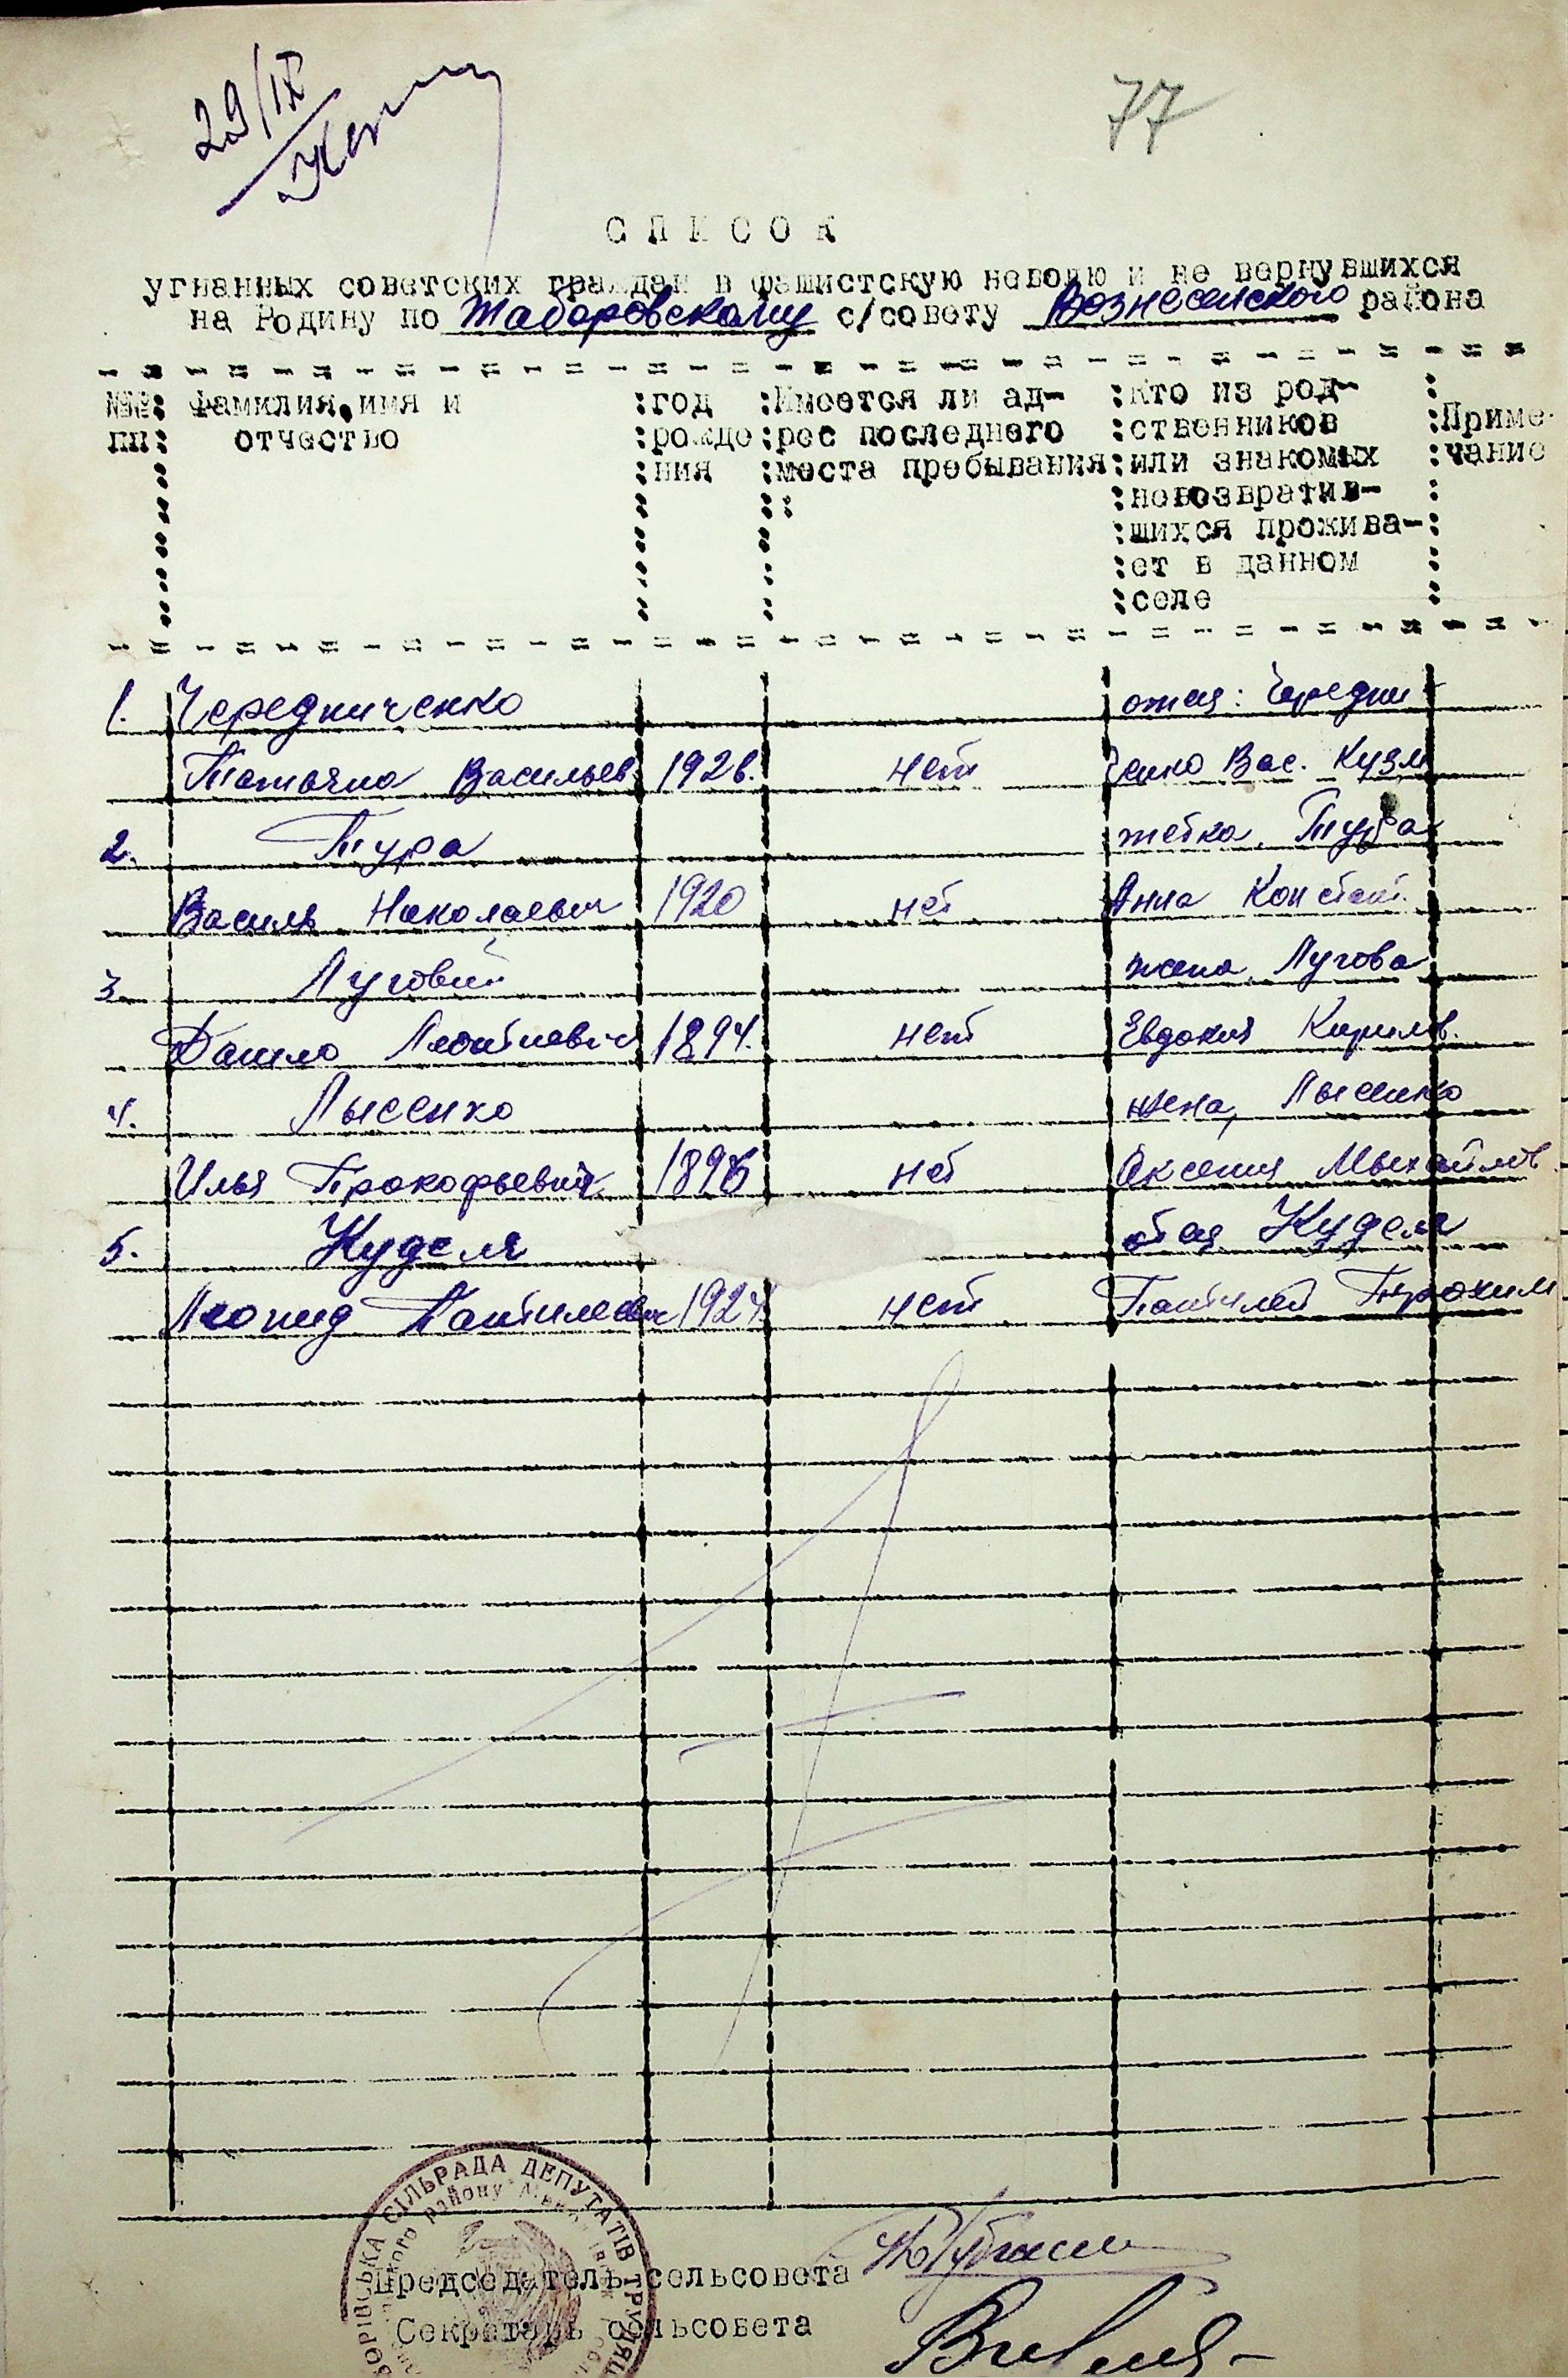 29/IX
77
СПИСОК
угнанных советских граждан в фашистскую неволю и не вернувшихся
на Родину по Таборовскому с/совету Вознесенского района
№№ пп
Фамилия, имя и отчество
год рожде ния
Имеется ли ад- рес последнего места пребывания
Кто из род- ственников или знакомых невозвратив- шихся прожива- ет в данном селе
Приме- чание
1. Чередниченко отец: Чередни
Татьяна Васильев. 1926. нет ченко Вас. Кузм
2. Тура
Василь Николаевич 1920 нет Анна Констант.
3. Луговий жена, Лугова
Данило Леонтиевич 1894. нет Евдокия Кирилов.
4. Лысенко жена, Лысенко
Илья Прокофьевич 1896 нет Аксения Михайлов.
5. Куделя отец Куделя
Леонид Пантилеевич 1924 нет Пантилей Трохим
ВОРІВСЬКА СІЛЬРАДА ДЕПУТАТІВ ТРУДЯЩ
району
Председатель сельсовета
Секретарь сельсовета